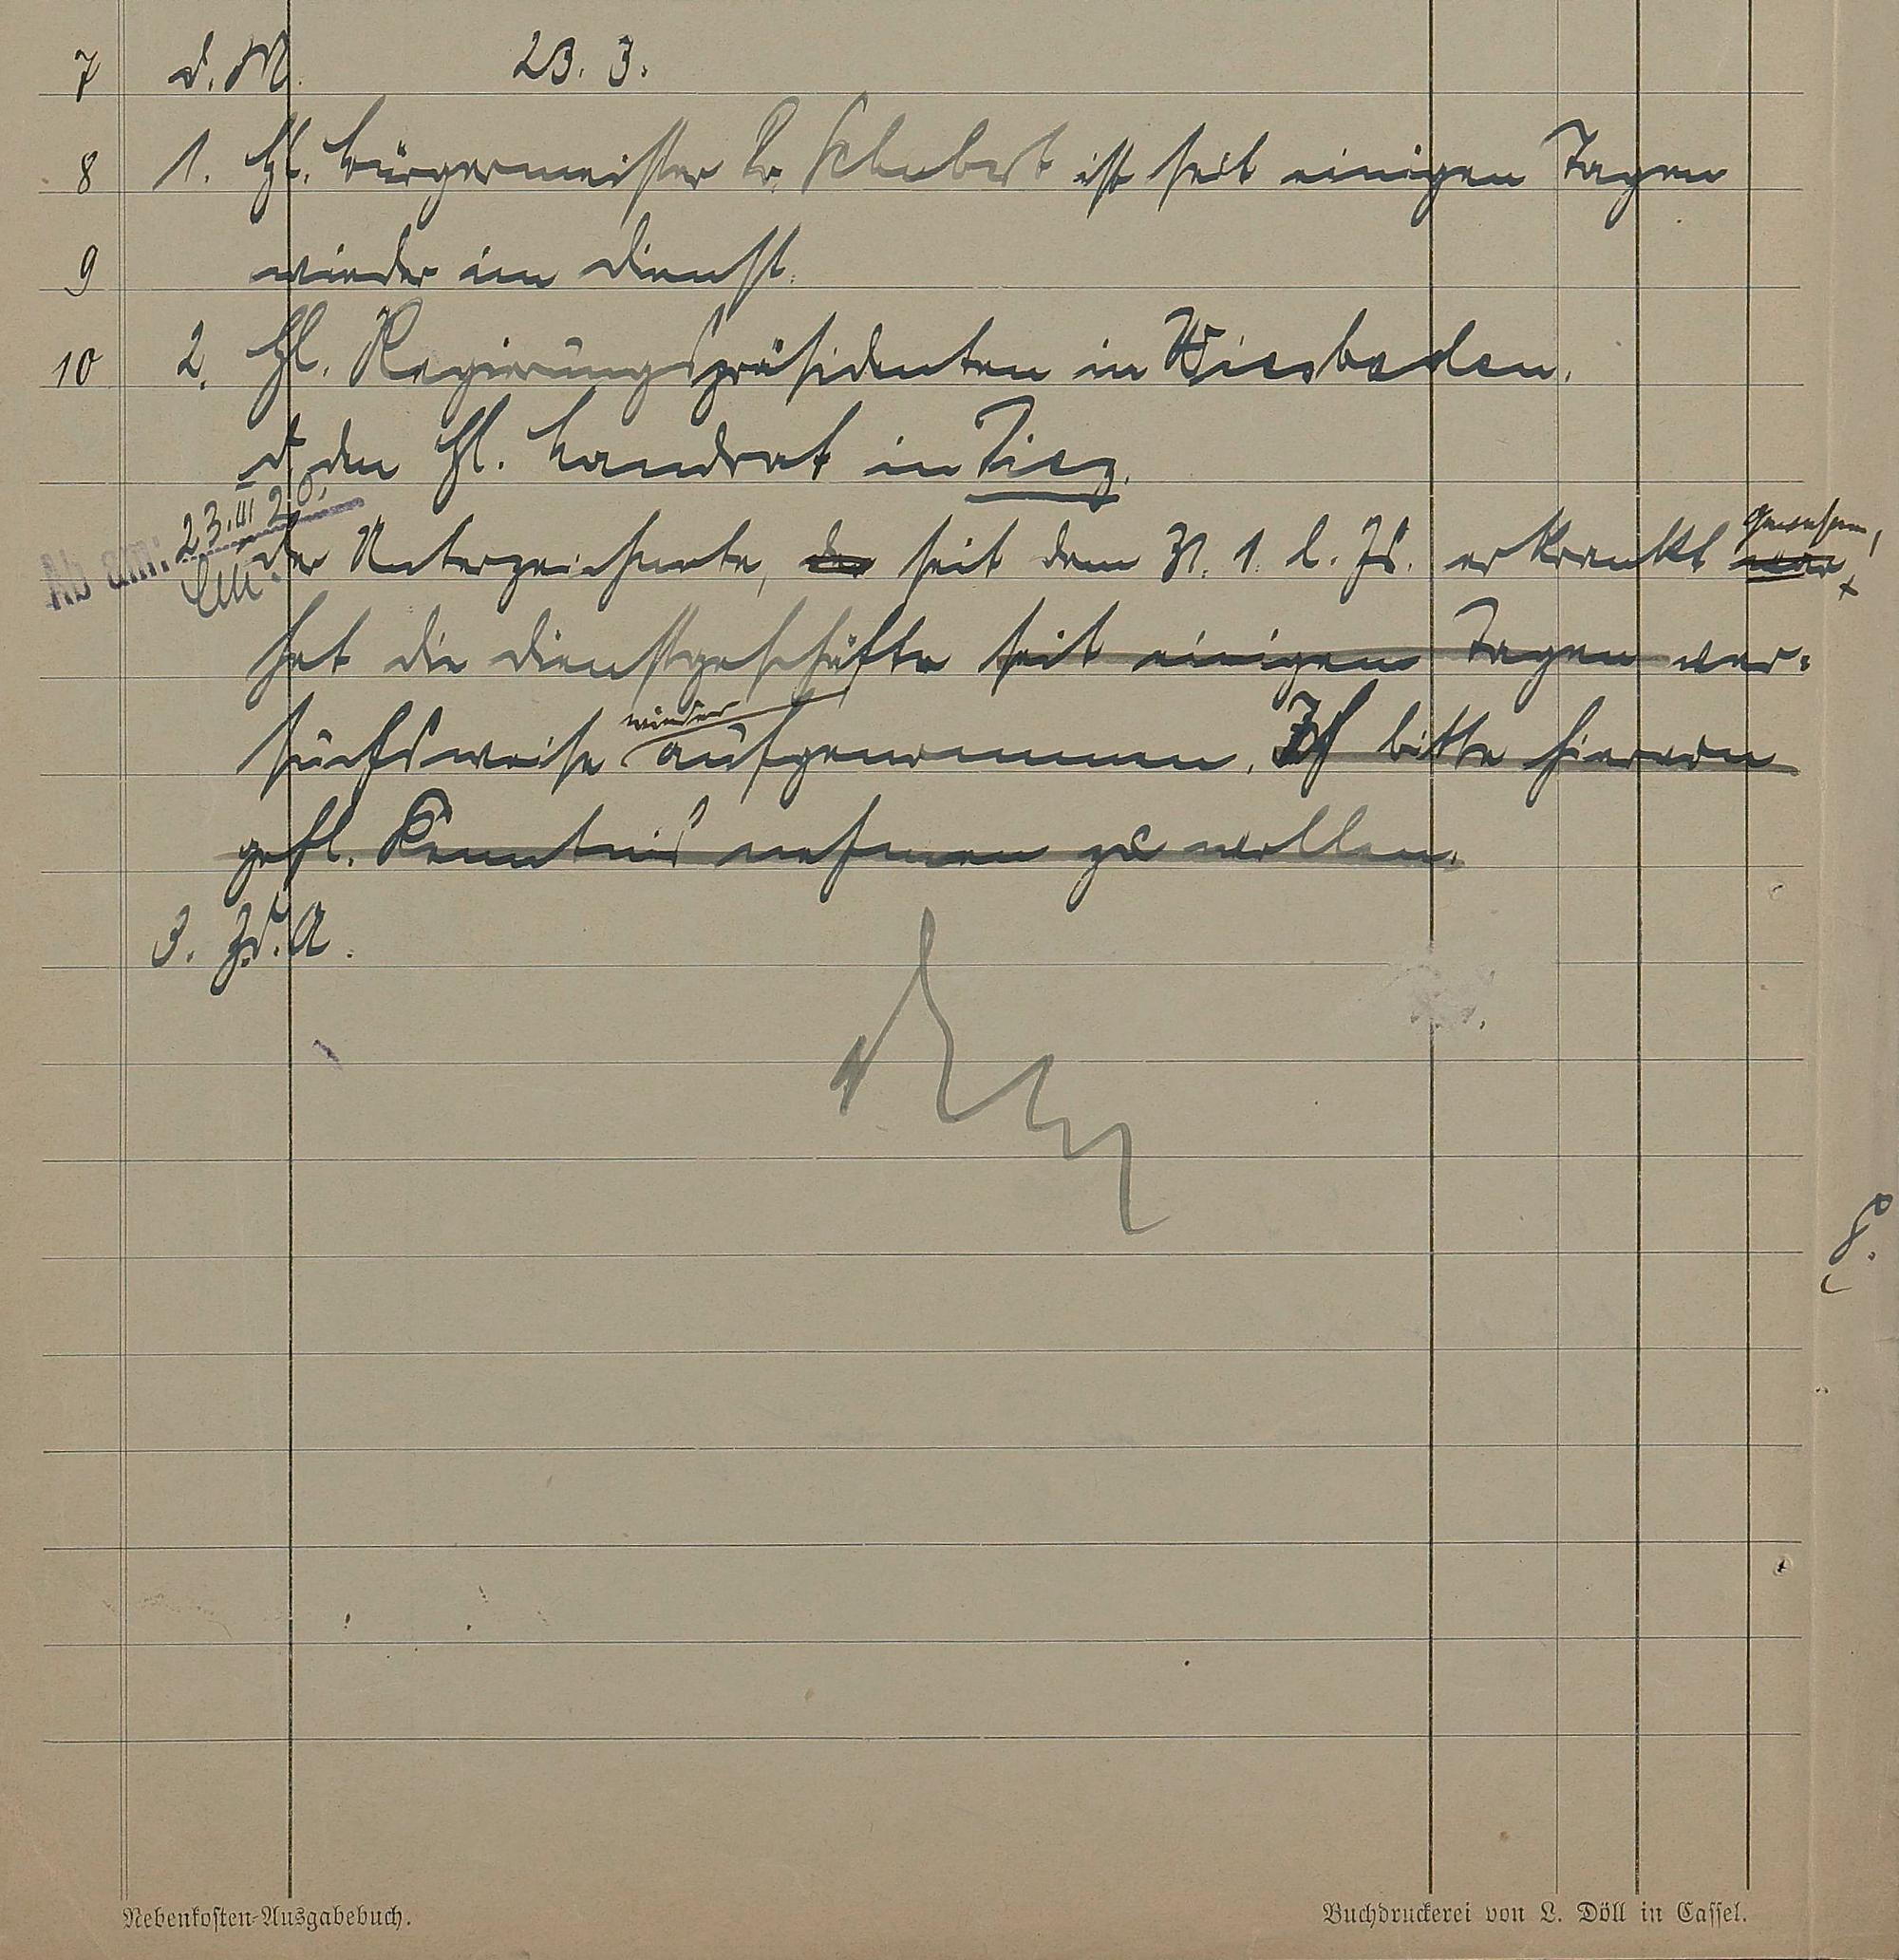 7 d. M. 23. 3.
8 1. H. Bürgermeister Dr. Schubert ist seit einigen Tagen
9 wieder im Dienst.
10 2. H. Regierungspräsidenten in Wiesbaden.
d. den H. Landrat in Diez.
Ab am: 23.III 20.
Der Unterzeichnete, der seit dem 31. 1. l. Js. erkrankt war gewesen,
hat die Dienstgeschäfte seit einigen Tagen ver-
suchsweise wieder aufgenommen. Ich bitte hiervon
gefl. Kenntnis nehmen zu wollen.
3. Z. d. A.
Nebenkosten-Ausgabebuch.
Buchdruckerei von L. Döll in Cassel.